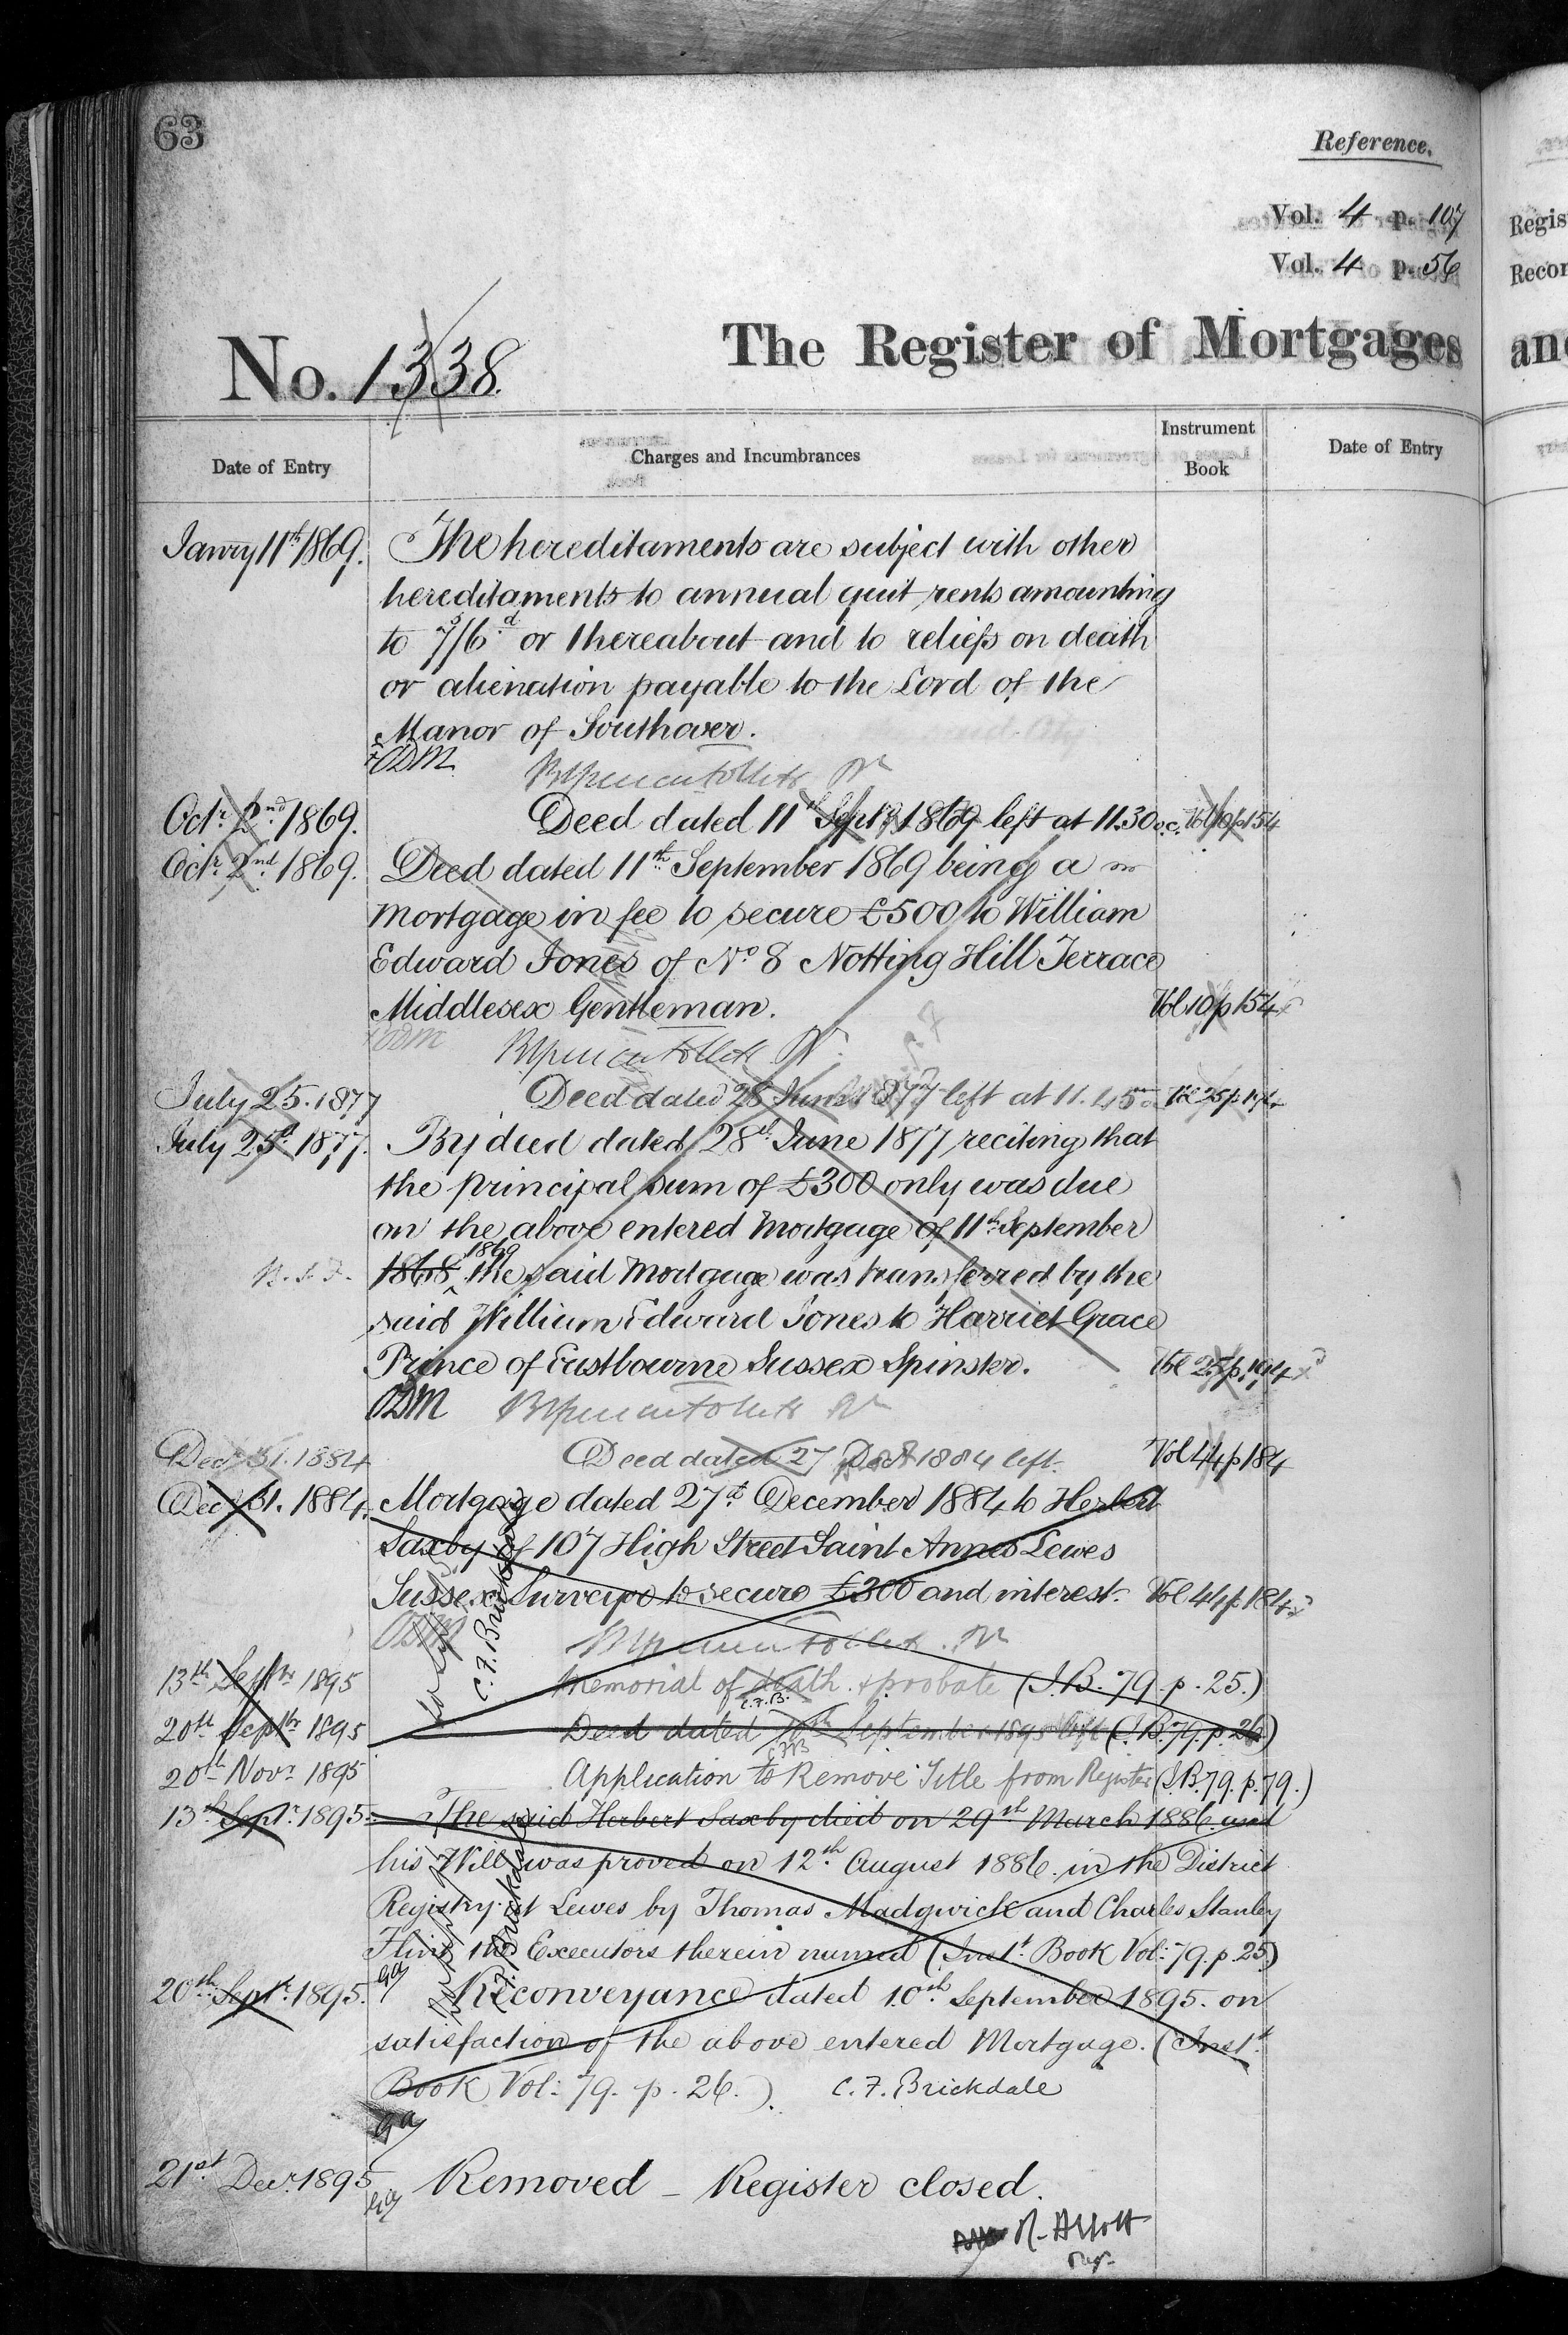 63
Reference.
Vol. 4 p. 107
Vol. 4 p. 56
No. 1338.
The Register of Mortgages
Regis
Recor
and
Date of Entry
Charges and Incumbrances
Instrument
Book
Date of Entry
Janry 11th 1869. The hereditaments are subject with other
hereditaments to annual quit rents amounting
to 7s/6d or thereabout and to reliefs on death
or alienation payable to the Lord of the
Manor of Southover.
ODM
Octr. 2nd 1869. Deed dated 11th Septr 1869 left at 11.30 Vol 10 p 154
Octr. 2nd 1869. Deed dated 11th September 1869 being a
mortgage in fee to secure £500 to William
Edward Jones of No 8 Notting Hill Terrace
Middlesex Gentleman. Vol 10 p 154
ODM
July 25. 1877 Deed dated 28 June 1877 left at 11.45
July 25th 1877. By deed dated 28th June 1877 reciting that
the principal sum of £300 only was due
on the above entered Mortgage of 11th September
1868 1869 the said Mortgage was transferred by the
said William Edward Jones to Harriet Grace
Prince of Eastbourne Sussex Spinster.
ODM
Decr 31. 1884 Deed dated 27 Decr 1884 left. Vol 44 p 184
Decr 31. 1884. Mortgage dated 27th December 1884 to Herbert
Saxby of 107 High Street Saint Annes Lewes
Sussex Surveyor to secure £300 and interest. Vol 44 p. 184
ODM
C. F. Brickdale
13th Septbr 1895 Memorial of death & probate (I.B. 79. p. 25.)
C.F.B.
20th Septbr 1895 Deed dated 10th September 1895 left (I.B. 79. p 26)
CFB
20th Novr 1895 Application to Remove Title from Register (I.B. 79. p. 79.)
13th Septr. 1895. The said Herbert Saxby died on 29th March 1886. and
his Will was proved on 12th August 1886. in the District
Registry at Lewes by Thomas Madgwick and Charles Stanley
Flint the Executors therein named (Inst. Book Vol: 79. p. 25)
C. F. Brickdale
20th Septr. 1895. Reconveyance dated 10th September 1895. on
satisfaction of the above entered Mortgage. (Inst.
Book Vol: 79. p. 26.). C. F. Brickdale
21st Decr. 1895 Removed – Register closed.